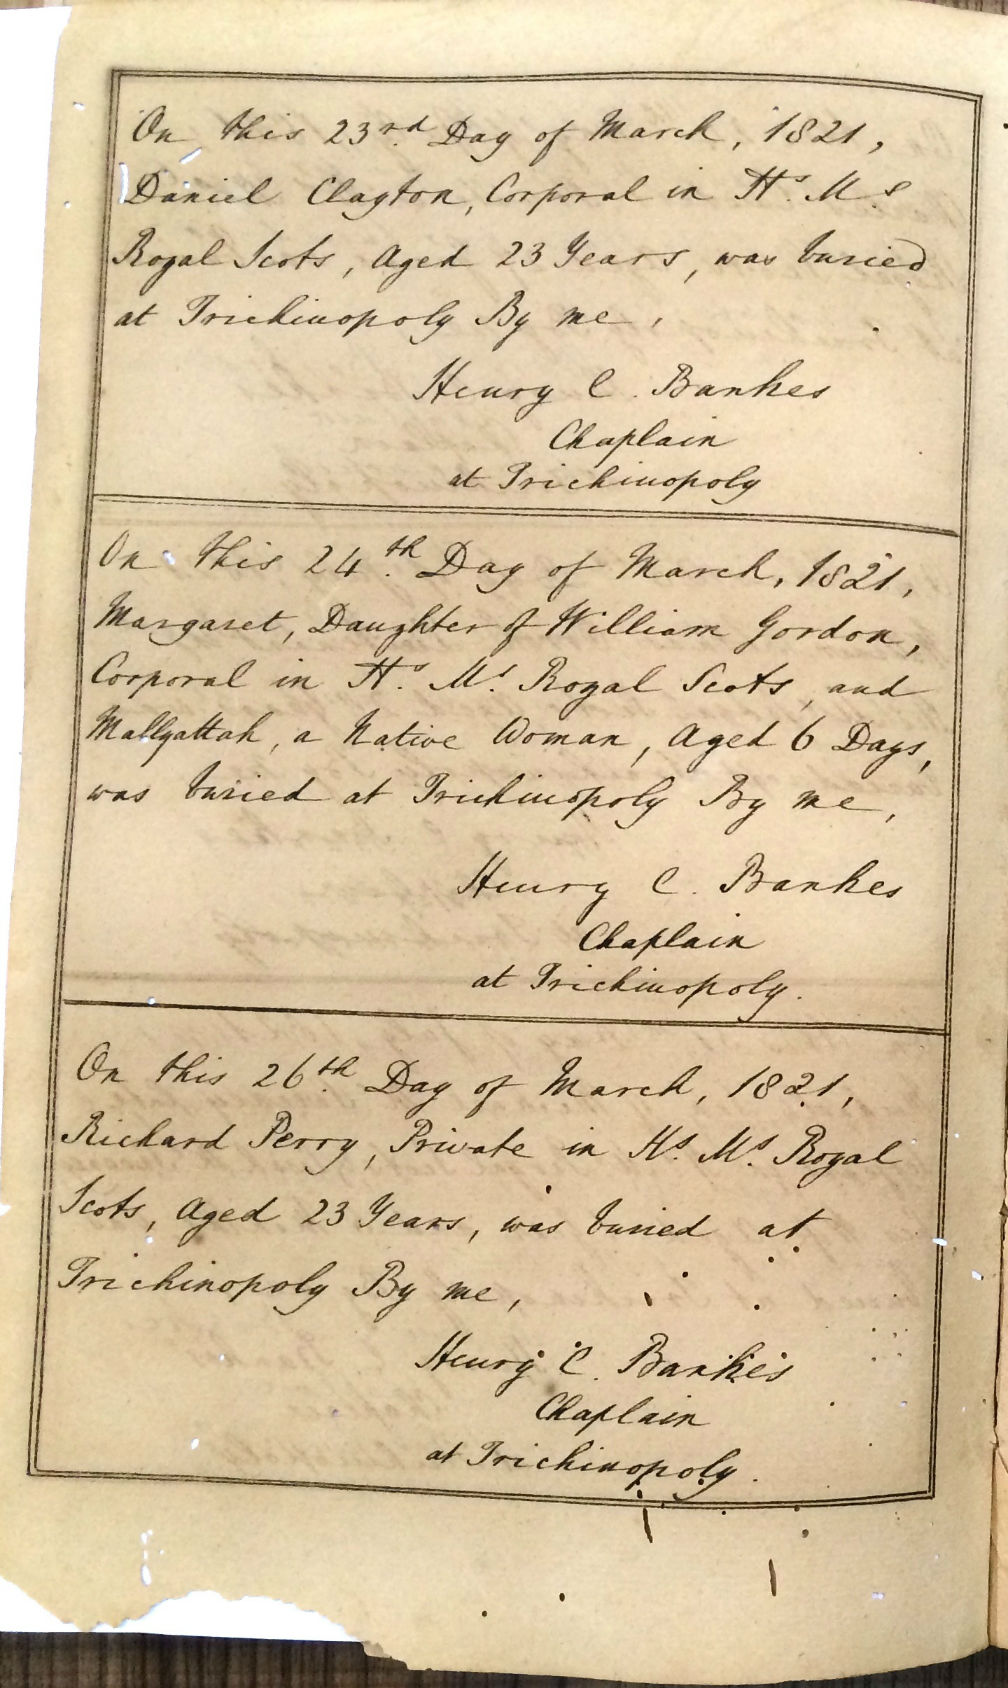 On this 23rd. Day of March, 1821,
Daniel Clayton, Corporal in Hs. Ms.
Royal Scots, Aged 23 Years, was buried
at Trichinopoly By me,
Henry C. Bankes
Chaplain
at Trichinopoly
On this 24th. Day of March, 1821,
Margaret, Daughter of William Gordon,
Corporal in Hs. Ms. Royal Scots, and
Mallyattah, a Native Woman, Aged 6 Days,
was buried at Trichinopoly By me,
Henry C. Bankes
Chaplain
at Trichinopoly.
On this 26th. Day of March, 1821,
Richard Perry, Private in Hs. Ms. Royal
Scots, Aged 23 Years, was buried at
Trichinopoly By me,
Henry C. Bankes
Chaplain
at Trichinopoly.